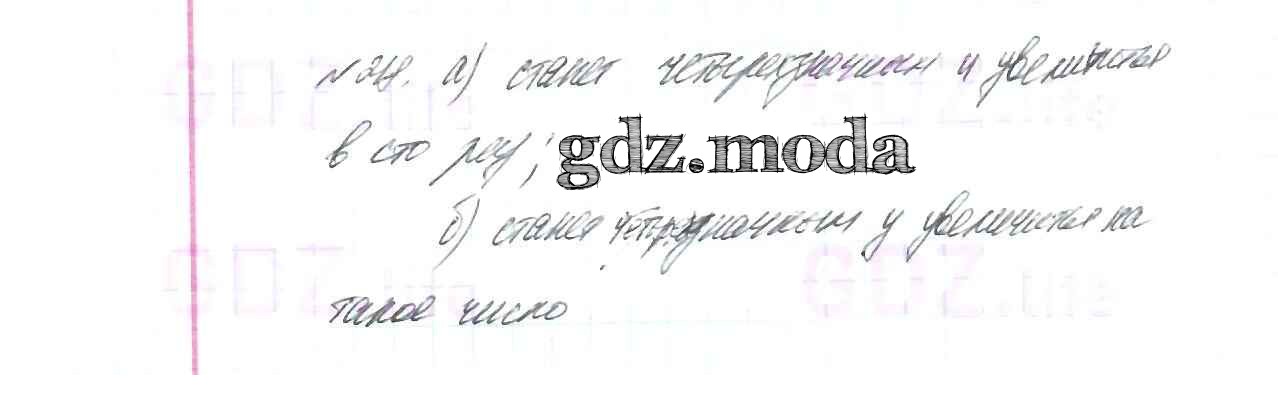 №28. а) станет четырехзначным и увеличится
в сто раз;
gdz.moda
б) станет четырехзначным и увеличится на
такое число